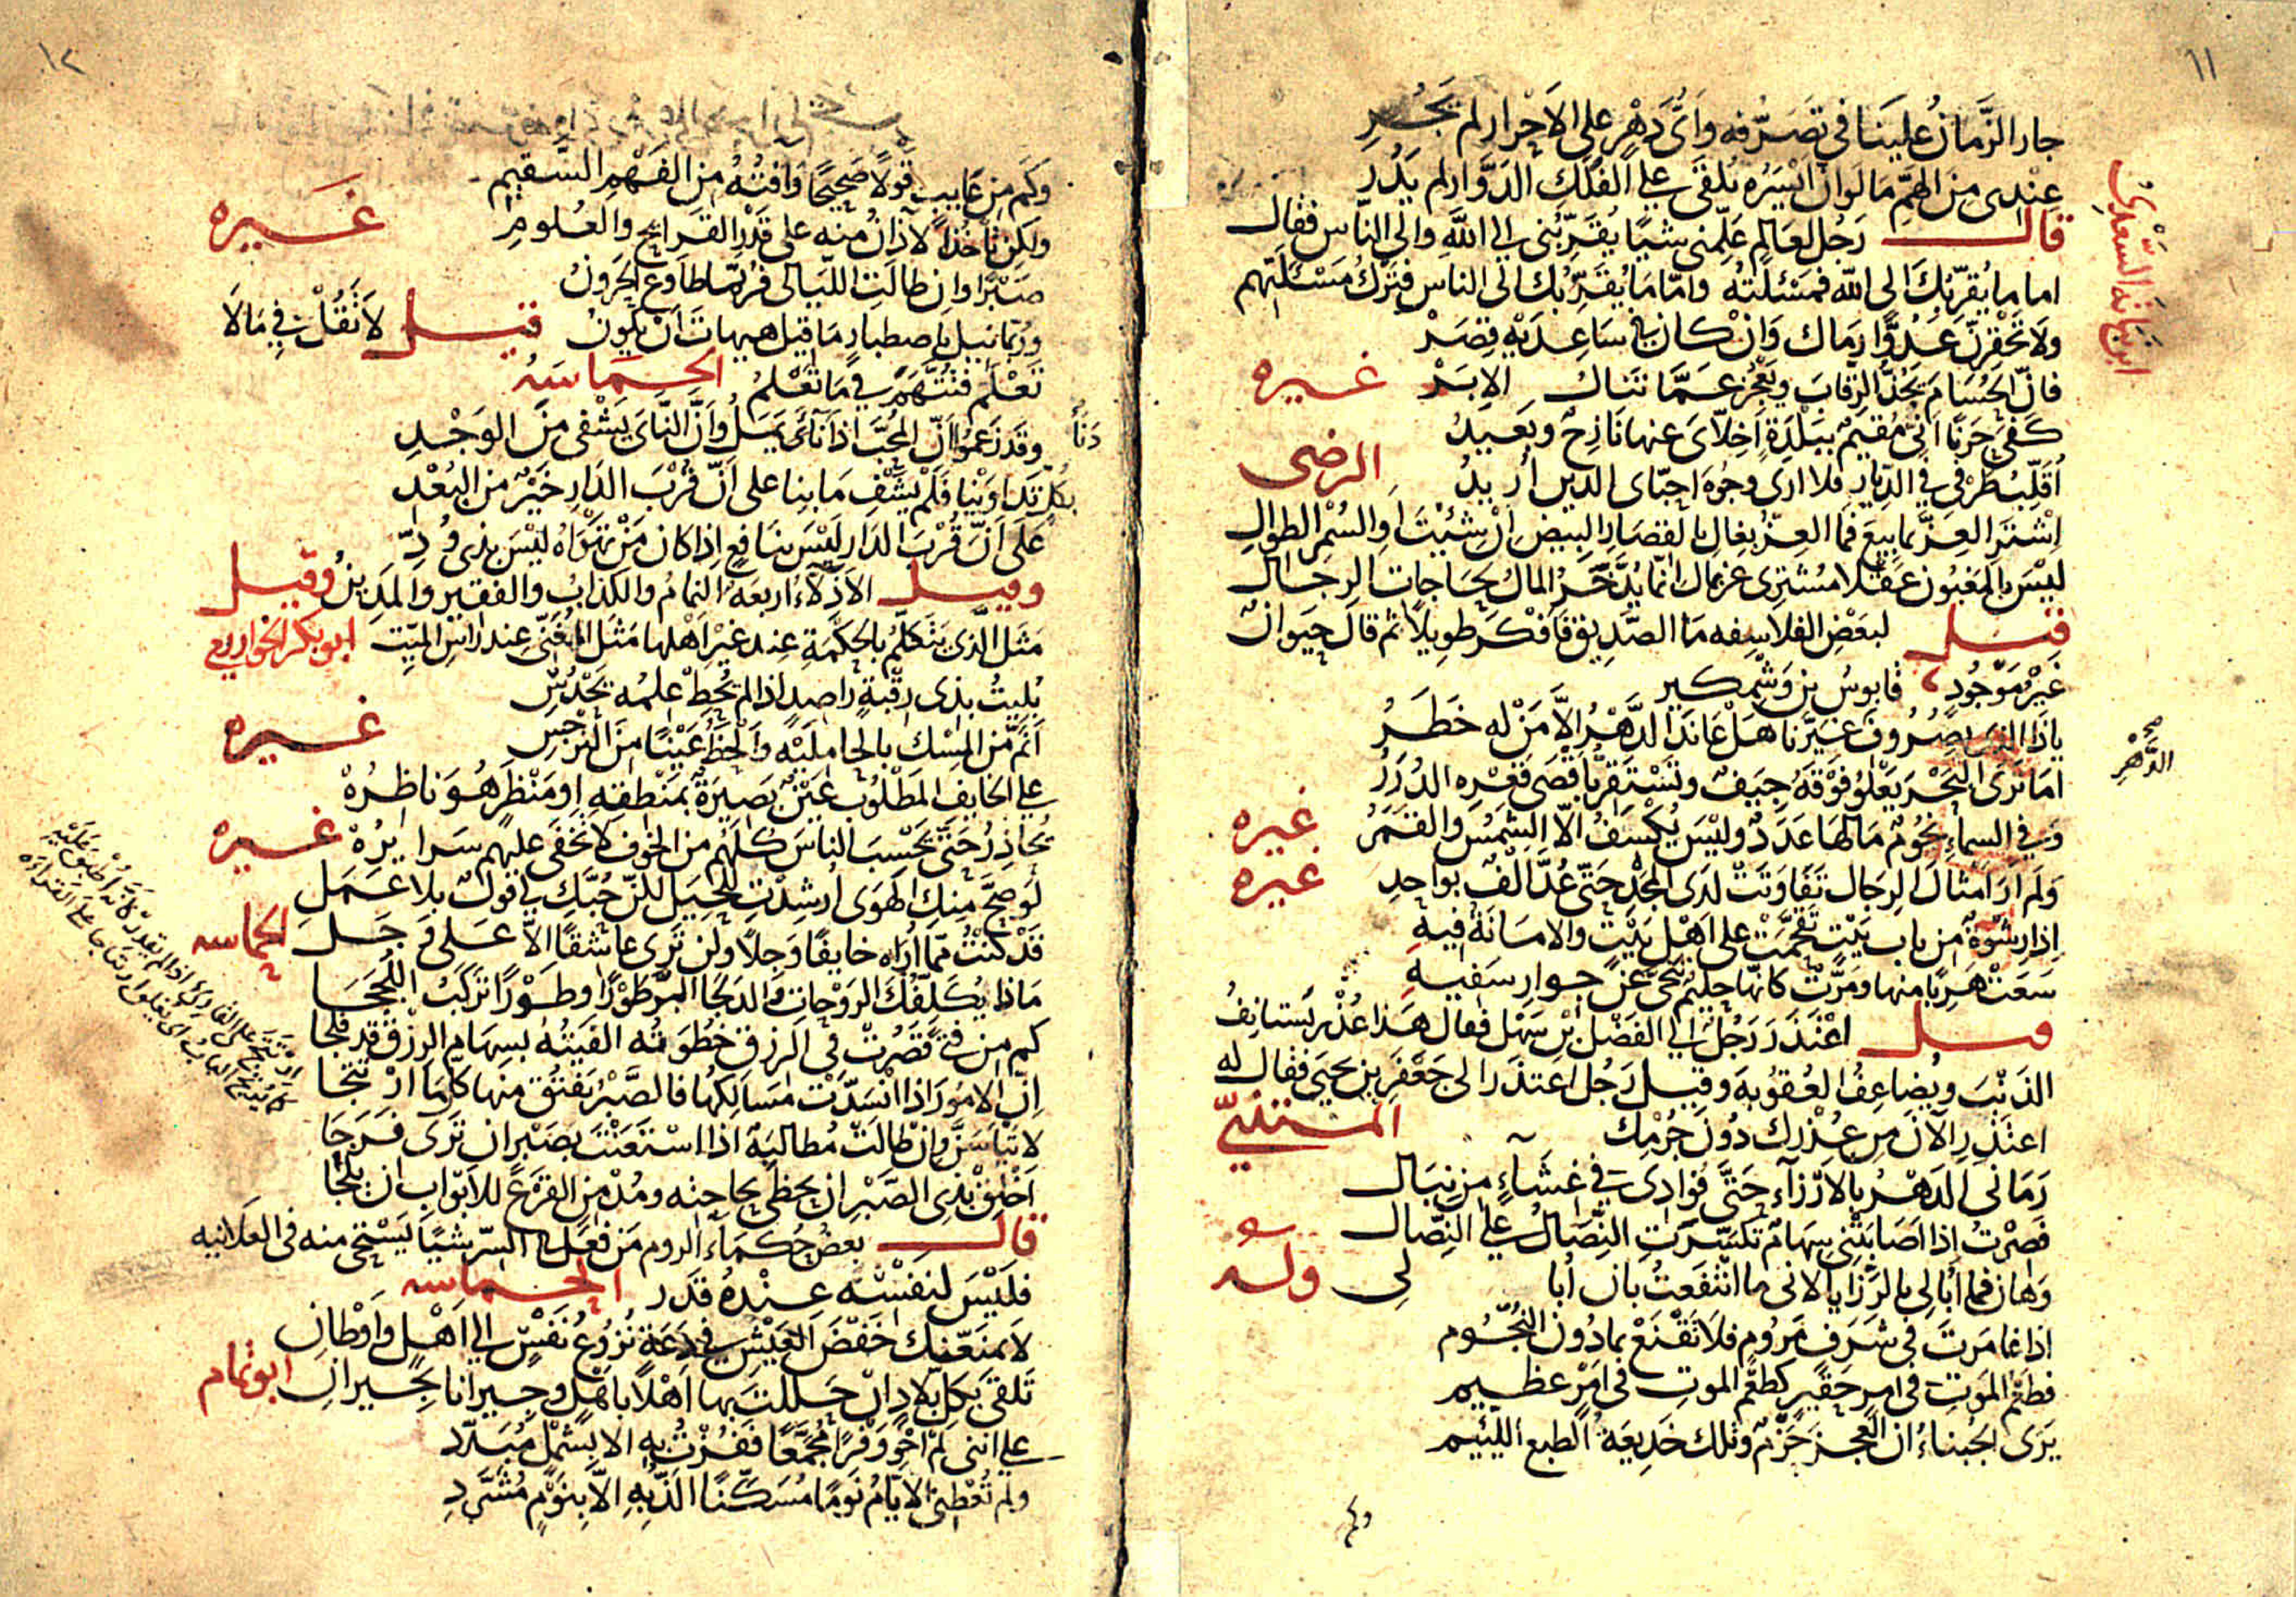 ١١
جار الزَّمانُ عَلينَا في تَصَرُّفه وَاَىُّ دَهْرٍ على الاَحْرار لم يَجُرِ
عِنْدى مِن الهمِّ مَا لَوانّ اَيْسَرُه يُلقَى على الفُلكِ الدَّوَّار لم يَدُرِ
ابن نباته السَّعْدىّ
قال رَجُل لعَالِم عَلِّمنى شيًا يُقَرِّبُنى الى اللهِ والى النّاس فقال
اما ما يُقرّبُكَ الى الله فمَسْئلَتُه وامّا مَا يُقَرِّبُك الى الناس فتَرْكُ مَسْئلَتِهم
ولَا تَحْقِرَنّ عَدُوًّا رمَاك وَانْ كان في سَاعِدَيْهِ قِصَرْ
فانّ الحُسَامَ يَجُذّ الرّقابَ ويَعْجُز عَمّا تَنَال الاِبَرْ غيره
كَفى حَزَنًا اَنّى مُقيمٌ ببَلْدَةٍ اَخِلّاىَ عنها نَازِحٌ وبَعيدُ
اُقَلِّبُ طَرْفى في الدّيار فلا ارى وجُوهَ احِبّاى الذين اُريدُ الرضى
اِشْتَرِ العِزَّ بما بِيعَ فما العِزُّ بغِال بالقصَار البِيض اِنْ شئتَ اَو السُمْر الطوالِ
ليْسَ بالمَغبُون عَقْلا مُشترى عز بمال انّما يُدَّخَرُ المالُ لحَاجات الرجال
قيل لبعَضِ الفلاسِفه مَا الصَّديق فاَفكَر طويلًا ثم قالَ حيَوانٌ
غَيْرُ مَوْجُودٍ قابوسُ بن وَشْمكير
ياذَا الذى بصُرُوفِ عَيَّرنَا هَلْ عَانَدَ الدَّهْرُ الاَّ مَنْ له خَطَرُ
صح
الدّهْرِ
امَا تَرىَ البَحْرَ يَعْلُو فوْقَهُ جِيَفٌ وتَسْتَقِرّ باَقصَى قَعْرِه الدُرَرُ
وَفي السماءِ نُجُومٌ مَا لهَا عَدَدٌ وليْسَ يُكْسَفُ الاّ الشَمسُ والقَمَرُ غيره
وَلَم اَرَ امثالَ الرجَال تَفاوَتَتْ لَدَى المَجْدِ حَتّى عُدَّ اَلفٌ بواحِدِ غيره
اِذا رِشْوةٌ مِن باب بَيْت تَقحّمَتْ على اَهْل بَيْتٍ والامَانَةُ فيهِ
سَعَتْ هَرَبًا منها ومَرَّتْ كانّها حَليمٌ تَنَحّى عَنْ جِوارِ سَفيهِ
قيل اعْتَذَرَ رَجُلٌ الى الفَضْل بْن سَهْل فقال هَذا عُذْرٌ يَستَانِفُ
الذَنْبَ ويُضاعِفُ العُقوُبهَ وقيل رَجُل اعتذَر الى جَعْفَرِ بن يَحيَى فقال له
اعتَذِر الآن مِن عُذْرِك دُونَ جُرْمِك المتنبّى
رَمَانى الدَهْرُ بالاَرْزآء حَتَّى فُؤادى في غِشَاءٍ مِن نِبَال
فَصِرْتُ اذا اَصَابَتْنى سِهَامٌ تكسَّرتِ النِّصَالُ على النِصَال
وَهَان فما اُبالى بالرَزايا لانى ما انْتَفَعتُ بان اُبا لى وله
اذا غامَرتَ فى شرَفٍ مَرُومٍ فلَا تقْنَعْ بمادُون النُجُوم
فطعْمُ المَوتِ فى امر حقَيرٍ كطعْمِ الموتِ فى اَمْرٍ عَظيم
يرَى الجُبناءُ ان العجز حَزْمٌ وتلك خَديعَهُ الطبع اللئيم
وكم
١٢
وَكَم مِن عَايبٍ قَولًا صَحيحًا وَافتُهُ مِن الفَهْمِ السَّقِيم
ولَكِن تَاخُذُ الآذانُ منه على قَدْرِ القَرايح والعُلُومِ غيره
صَبْرًا وان طالَتِ اللّيَالى فرُبّما طاوَع الحَرُونُ
ورُبّما نيل باصطبار مَا قيل هيهاتَ اَنْ يكُونْ قيل لاَ تَقُلْ فى مَا لاَ
تَعْلَم فتُتَّهمَ في مَا تَعْلَمُ الحماسه
وقَدْ زَعمُوا اَنّ المُحِبّ اذا دَنَا يَمَلّ وَاَنَّ النّاىَ يَشْفى مِنَ الوَجْدِ
بكُلٍّ تَدَاوَيْنا فَلم يُشْفَ مَا بِنا على اَنّ قُرْبَ الدّار خيْرٌ من البُعْدِ
عَلَى اَنّ قُرْبَ الدَار ليْسَ بنَافِعٍ اِذا كان مَنْ تهْوَاهُ ليْسَ بذى وُدِّ
وقيل الاَذِلاّءُ اربعَه النمامُ والكذابُ والفقير والمَدِينُ وقيل
مَثَل الّذى يَتَكلّمُ بالحِكمَةِ عِندَ غَيْر اَهْلها مَثَل المُغَنّى عِند راس الميّت ابو بكر الخوارزمى
بُليتُ بذى رِقْبَةٍ راصِدٍ اذا لم يُحِطْ عِلمُه يَحْدُسِ
اَنَمّ من المِسْك بالحامِليْه وَاَلحَظُ عَيْنًا مِنَ النَرْجِسِ غيره
على الخايف المَطلُوب عَيْنٌ بَصِيرَةٌ بمَنْطقِه اوَمَنْظَرٍ هُوَ ناظِرُهْ
يُحَاذِرُ حَتّى يَحْسبَ الناسَ كلَّهُم من الخوْف لا تَخفَى عليهم سَرايرُهْ غيره
لَو صَحّ مِنْكَ الهَوى اُرشِدْتِ للحِيَلِ لكنّ حُبَّكِ لى قولٌ بلا عَمَلِ
قَدْ كُنْتُ ممّا اُرَاه خايفًا وَجِلًا ولَن تَرَى عاشقًا الاّ عَلى وَجَلِ الحماسه
مَاذا يُكَلِّفُكَ الرَوْحَاتِ وَالدَلجَا البَرَّ طَوْرًا وطوْرًا تَركَبُ اللُجَجَا
كم مِن فتًى قَصُرتْ فى الرزق خُطْوَتُه الفَيتُهُ بسِهام الرزق قد فلجا
اِنّ الامُورَ اذا انْسَدّتْ مَسَالِكُها فالصَّبْرُ يَفْتُقُ منها كلّمَا ارْتَتجا
لا تَيْاَسَنَّ وَانْ طالَتْ مُطالبَهٌ اذا اسْتَعَنْتَ بصَبْر ان تَرَى فَرَجَا
اَخْلِقْ بذى الصَّبْر ان يحظى بحَاجته ومُدْمِن القَرْع للاَبْوابِ ان يَلِجَا
قال بعضُ حُكمَاء الروم مَن فعَل فى السّر شيًا يَسْتحْى منه فى العَلانيه
فليْسَ لنَفْسِه عِنْدَهُ قدَر الحماسه
لا يمنعَنّك خَفْضَ العَيْش في دَعَةٍ نُزُوعُ نَفْسٍ الى اَهْل وَاَوْطانِ
تَلقَى بكل بِلادٍ اِنْ حَللتَ بها اَهْلًا باَهْلٍ وجيرانا بجيرانِ ابو تمام
على اننى لم اَحْوِ وَفْرًا مُجَمَّعًا ففُزْتُ بهِ الا بشَمْلٍ مُبَدّدِ
ولم تُعْطنى الايَّامُ نَومًا مُسَكّنًا الَذُّ بهِ الاّ بنَوْمٍ مُشَرّدِ